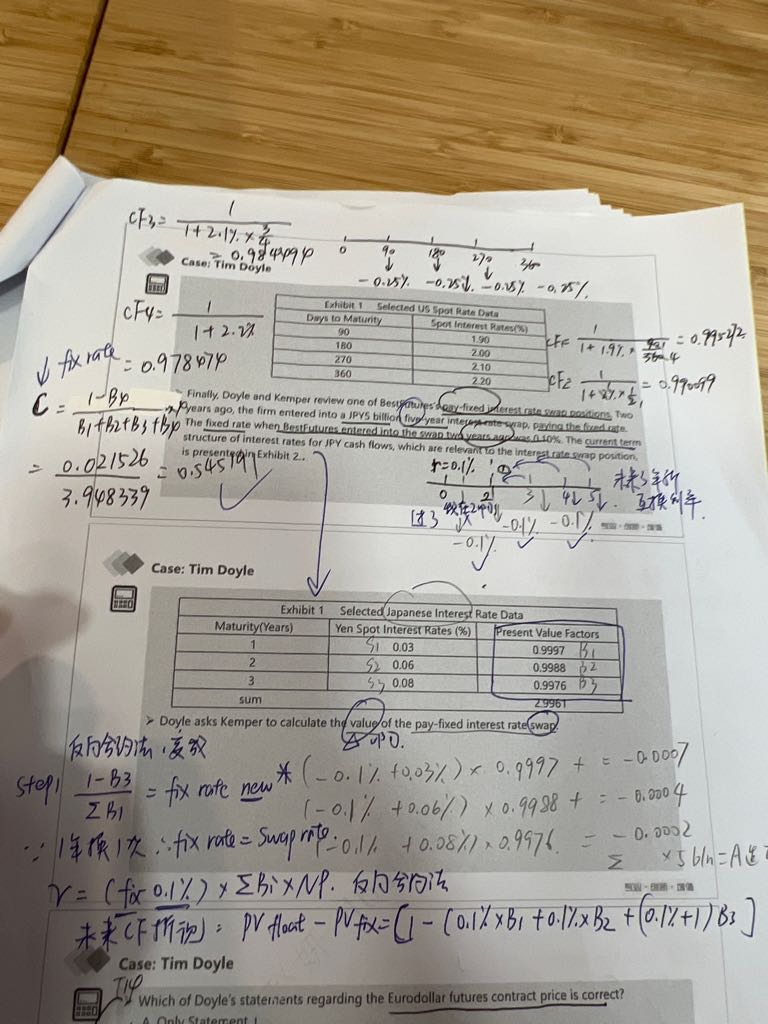 CF3 = 1 / (1 + 2.1% × 3/4)
= 0.984494
0 90 180 270 360
-0.25% -0.25% -0.25% -0.25%
Case: Tim Doyle
Exhibit 1 Selected US Spot Rate Data
Days to Maturity Spot Interest Rates(%)
90 1.90
180 2.00
270 2.10
360 2.20
CF4 = 1 / (1 + 2.2%)
= 0.978474
= 0.995272
CF2 = 1 / (1 + 2% × 1/2) = 0.990099
↓ fix rate
C = (1 - B4) / (B1 + B2 + B3 + B4)
= 0.021526 / 3.948339 = 0.545191
Finally, Doyle and Kemper review one of BestFutures's pay-fixed interest rate swap positions. Two
years ago, the firm entered into a JPY5 billion five year interest rate swap, paying the fixed rate.
The fixed rate when BestFutures entered into the swap two years ago was 0.10%. The current term
structure of interest rates for JPY cash flows, which are relevant to the interest rate swap position,
is presented in Exhibit 2..
r=0.1% ①
0 2 3 4 5
未来3年所
互换利率
-0.1% -0.1% -0.1%
Case: Tim Doyle
Exhibit 1 Selected Japanese Interest Rate Data
Maturity(Years) Yen Spot Interest Rates (%) Present Value Factors
1 S1 0.03 0.9997 B1
2 S2 0.06 0.9988 B2
3 S3 0.08 0.9976 B3
sum 2.9961
➢ Doyle asks Kemper to calculate the value of the pay-fixed interest rate swap.
反向合约法
Step1 (1 - B3) / ΣB1 = fix rate new * (-0.1% + 0.03%) × 0.9997 + = -0.0007
(-0.1% + 0.06%) × 0.9988 + = -0.0004
∵ 1年换1次 ∴ fix rate = Swap rate. (-0.1% + 0.08%) × 0.9976 = -0.0002
Σ × 5 bln = A
V = (fix 0.1%) × ΣBi × NP. 反向合约法
未来CF折现: PV float - PV fix = [1 - (0.1% × B1 + 0.1% × B2 + (0.1% + 1) B3]
Case: Tim Doyle
Which of Doyle's statements regarding the Eurodollar futures contract price is correct?
A. Only Statement 1